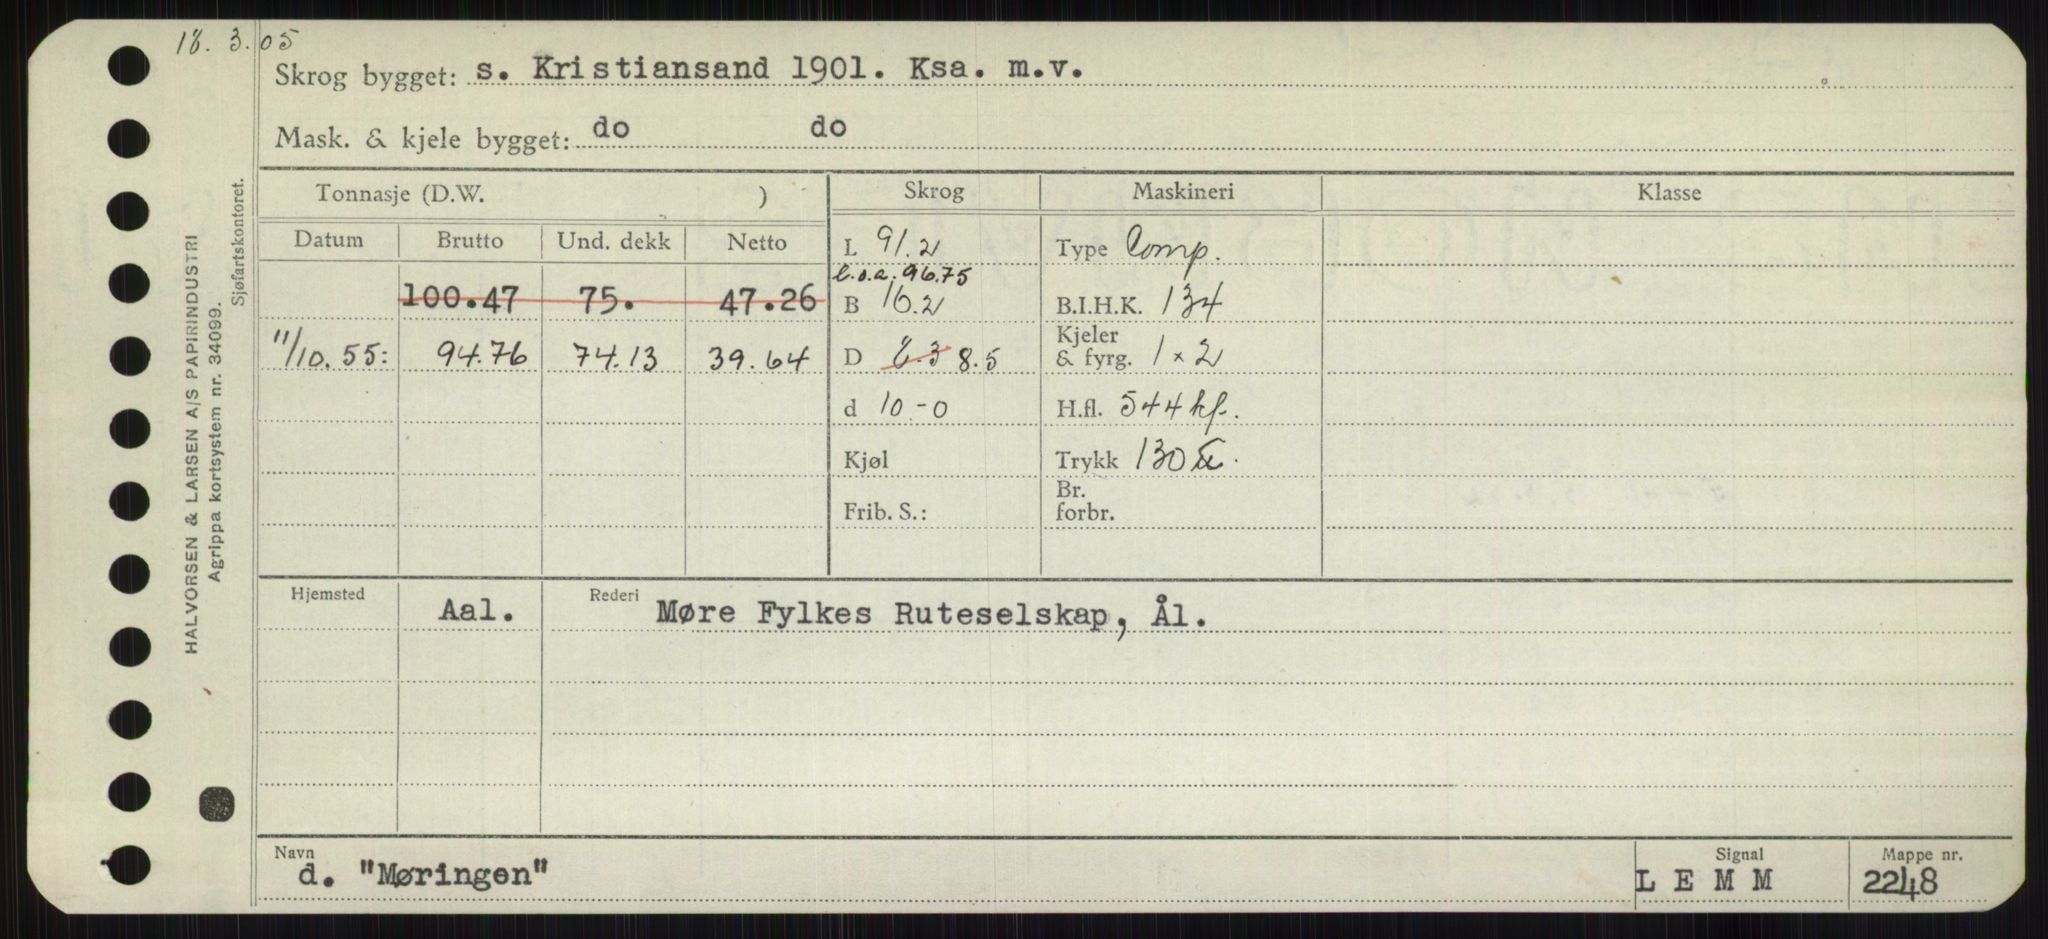 18. 3. 05
Skrog bygget: s. Kristiansand 1901. Ksa. m.v.
Mask. & kjele bygget: do do
Tonnasje (D.W. ) Skrog Maskineri Klasse
Datum Brutto Und. dekk Netto L 91.2 Type Comp.
l.o.a. 96.75
100.47 75. 47.26 B 16.2 B.I.H.K. 134
11/10.55: 94.76 74.13 39.64 D 8.3 8.5 Kjeler & fyrg. 1 x 2
d 10-0 H.fl. 544 kf.
Kjøl Trykk 130 ℔.
Frib. S.: Br. forbr.
Hjemsted Aal. Rederi Møre Fylkes Ruteselskap, Ål.
Navn d. "Møringen" Signal L E M M Mappe nr. 2248
HALVORSEN & LARSEN A/S PAPIRINDUSTRI
Agrippa kortsystem nr. 34099.
Sjøfartskontoret.